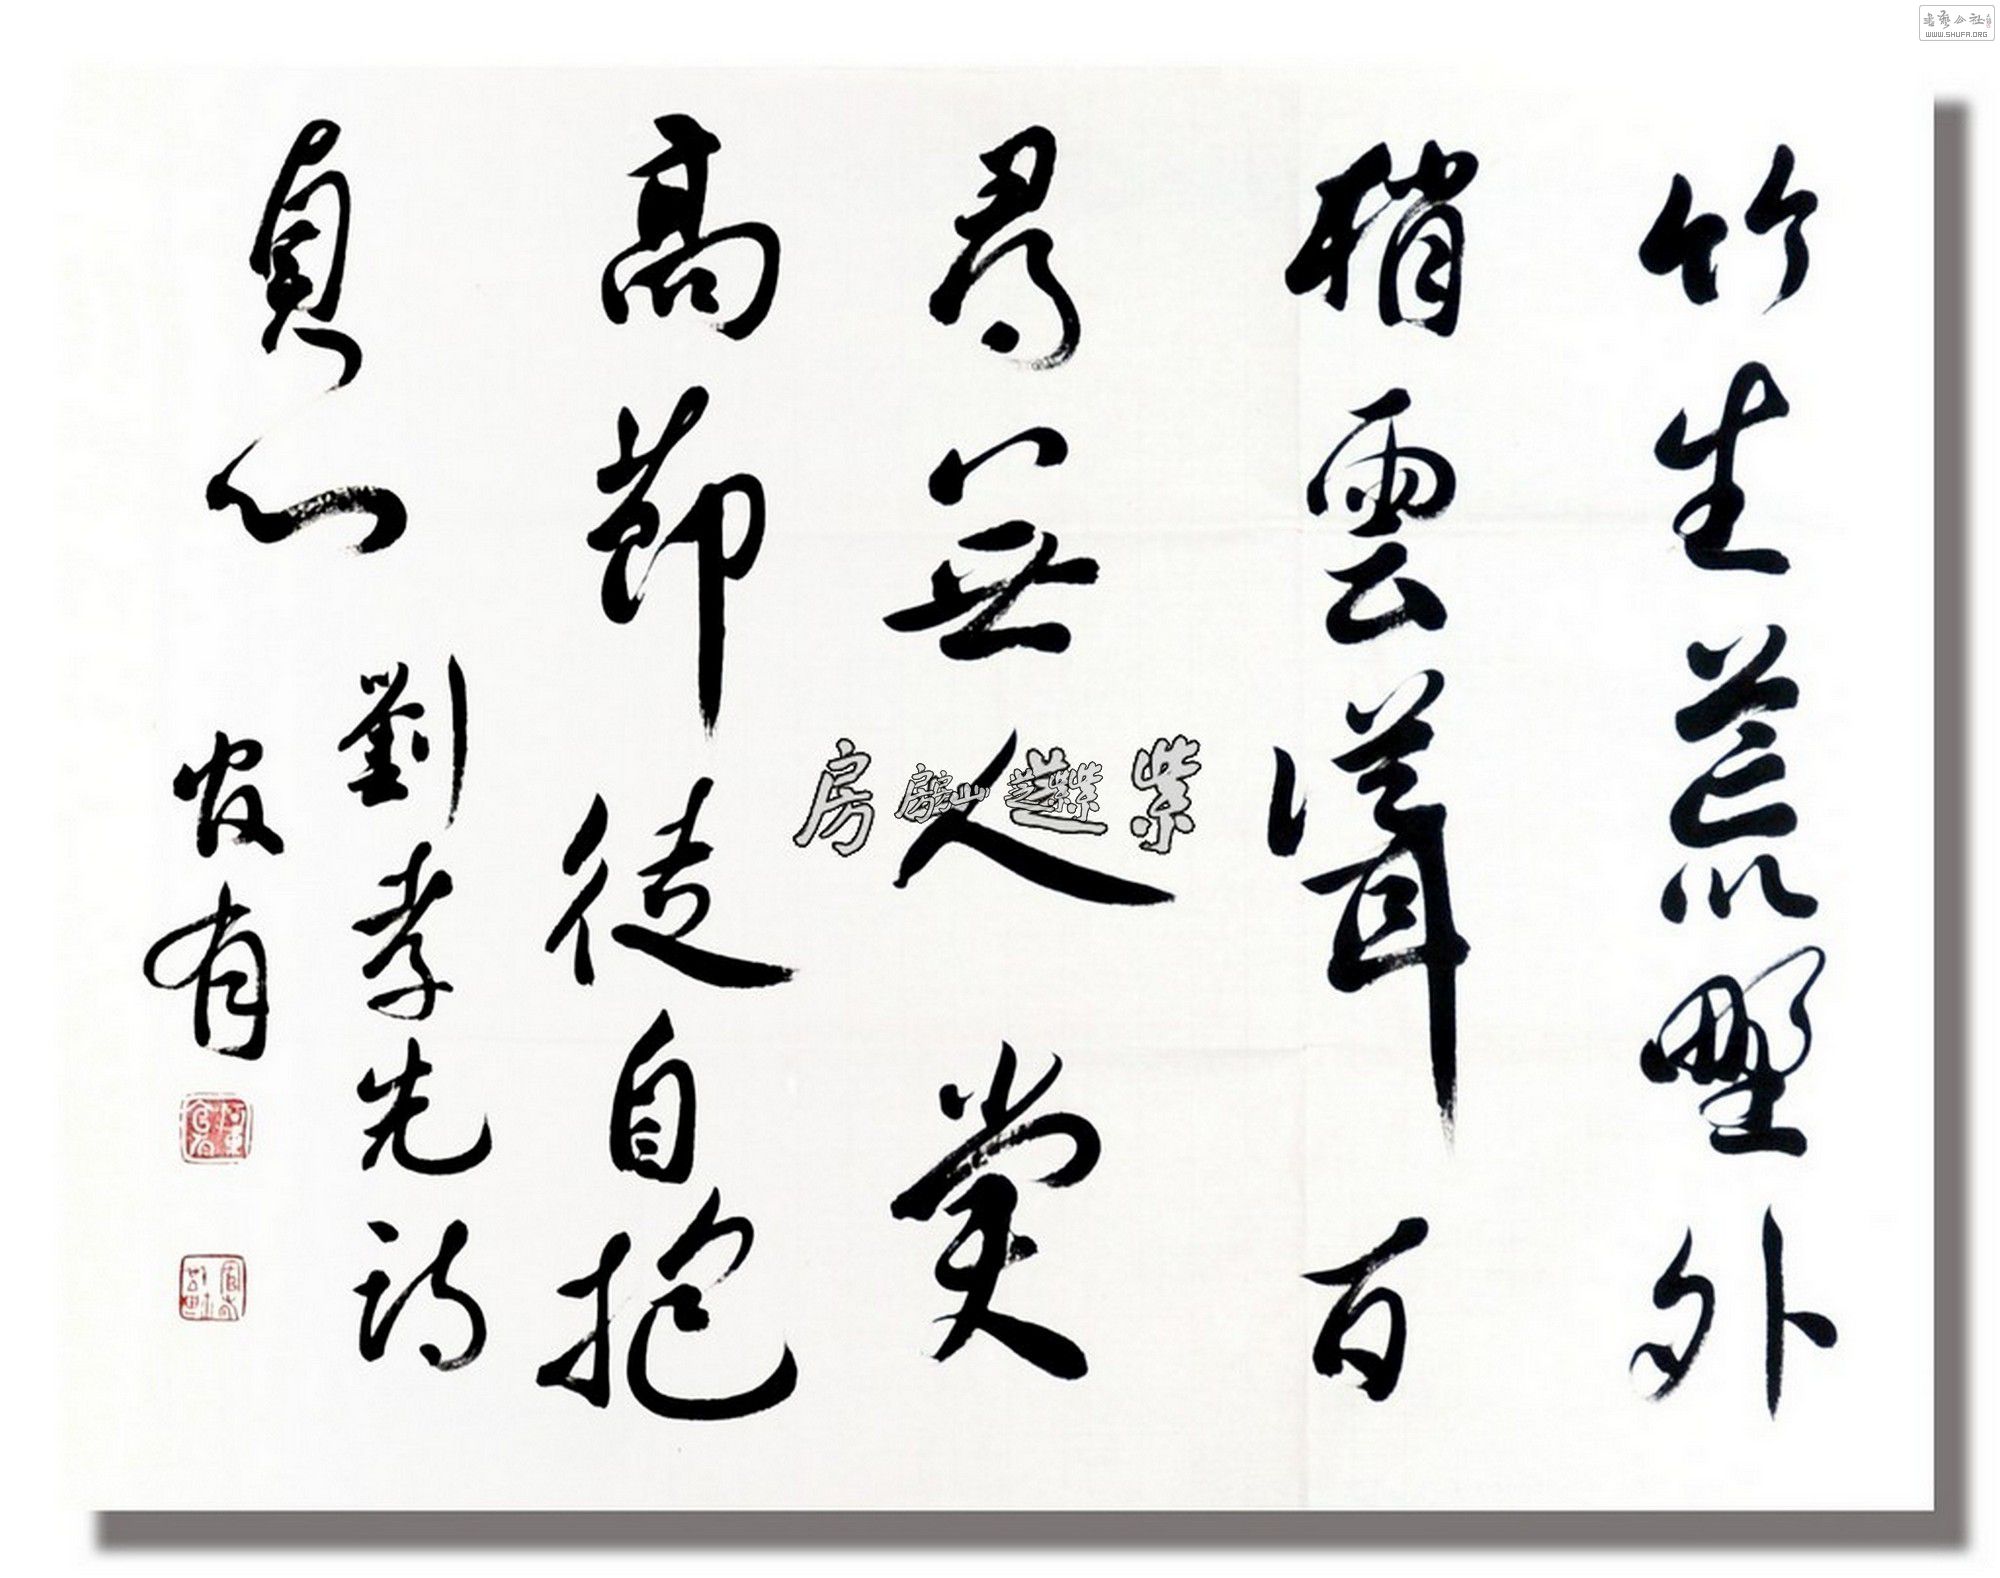 竹生荒野外
梢雲聳百
尋無人賞
高節徒自抱
貞心
劉孝先詩
官有
紫芝山房
書藝公社
WWW.SHUFA.ORG